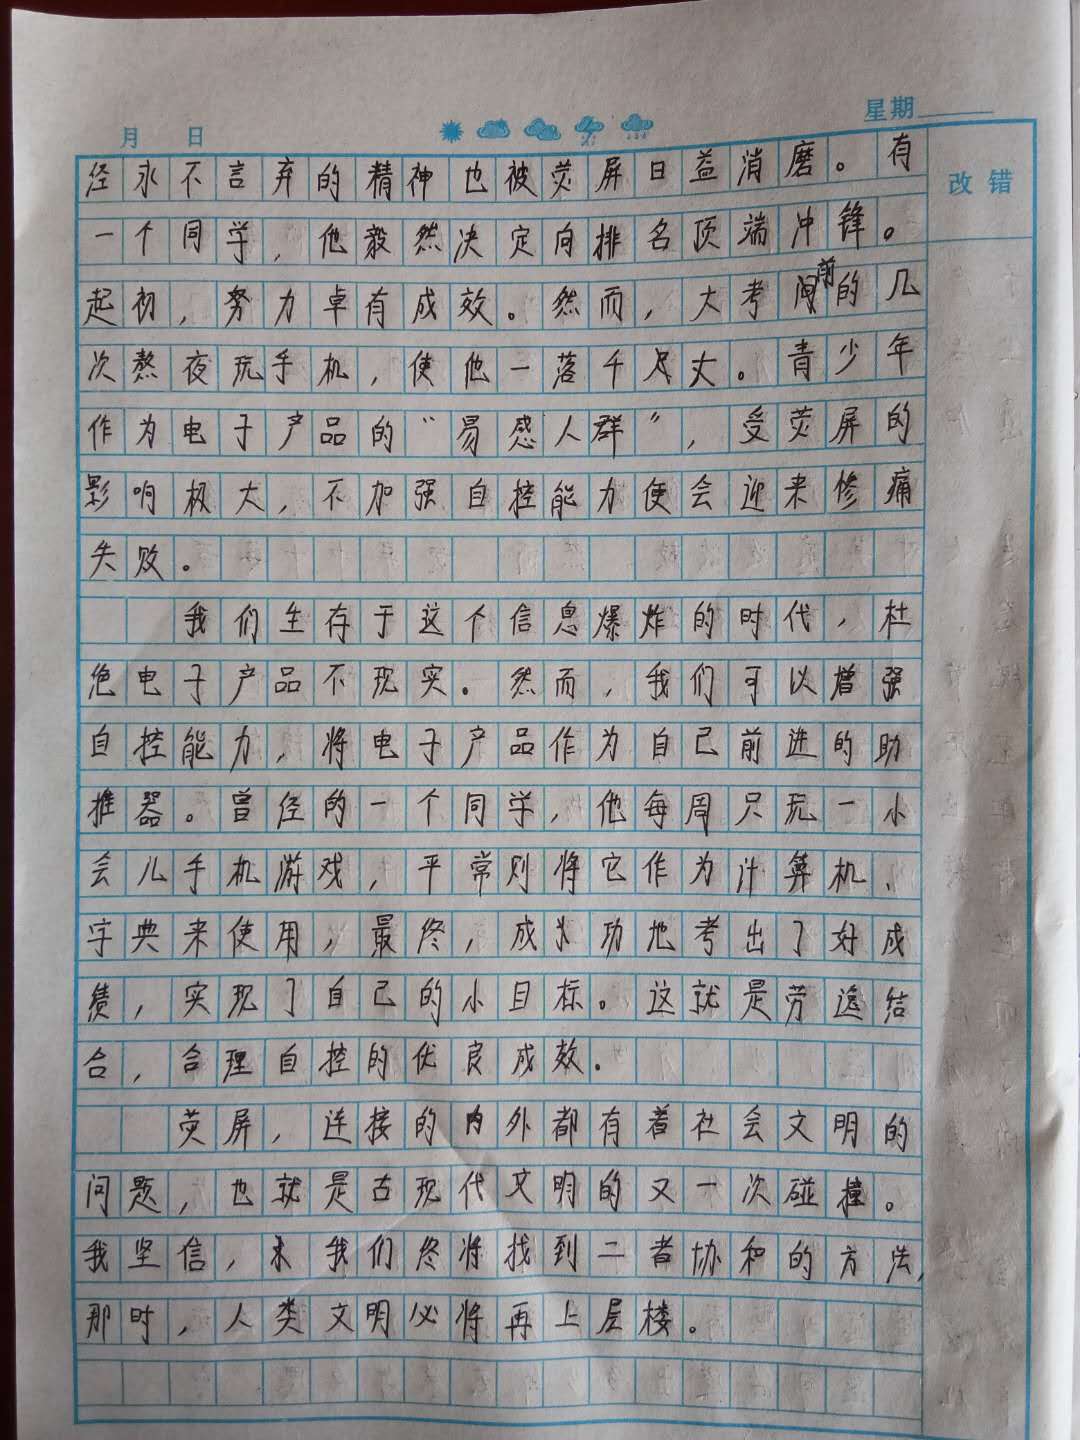 月 日 星期
改错
经永不言弃的精神也被荧屏日益消磨。有
一个同学，他毅然决定向排名顶端冲锋。
起初，努力卓有成效。然而，大考前的几
次熬夜玩手机，使他一落千丈。青少年
作为电子产品的“易感人群”，受荧屏的
影响极大，不加强自控能力便会迎来惨痛
失败。
我们生存于这个信息爆炸的时代，杜
绝电子产品不现实。然而，我们可以增强
自控能力，将电子产品作为自己前进的助
推器。曾经的一个同学，他每周只玩一小
会儿手机游戏，平常则将它作为计算机、
字典来使用，最终，成功地考出了好成
绩，实现了自己的小目标。这就是劳逸结
合，合理自控的优良成效。
荧屏，连接的内外都有着社会文明的
问题，也就是古现代文明的又一次碰撞。
我坚信，我们终将找到二者协和的方法，
那时，人类文明必将再上层楼。